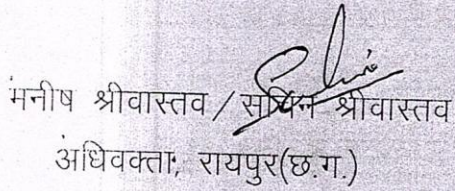 मनीष श्रीवास्तव / सचिन श्रीवास्तव
अधिवक्ता, रायपुर(छ.ग.)